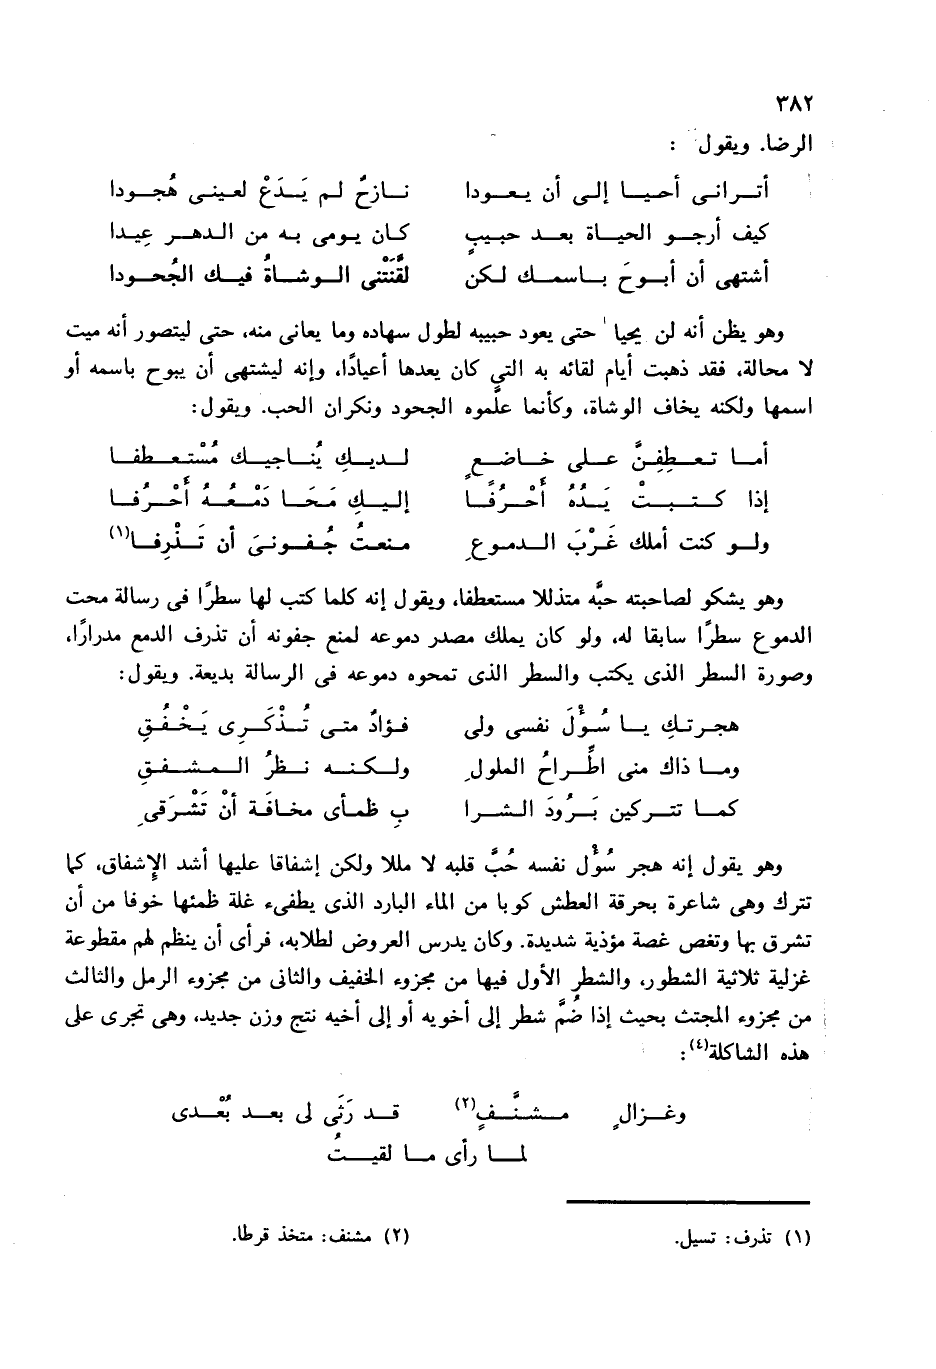 ٣٨٢
الرضا. ويقول :
أترانى أحيا إلى أن يعودا نازحٌ لم يَدَعْ لعينى هُجودا
كيف أرجو الحياة بعد حبيبٍ كان يومى به من الدهر عيدا
أشتهى أن أبوحَ باسمك لكن لقَّنَتْنى الوشاةُ فيك الجُحودا
وهو يظن أنه لن يحيا حتى يعود حبيبه لطول سهاده وما يعانى منه، حتى ليتصور أنه ميت
لا محالة، فقد ذهبت أيام لقائه به التي كان يعدها أعيادًا، وإنه ليشتهى أن يبوح باسمه أو
اسمها ولكنه يخاف الوشاة، وكأنما علَّموه الجحود ونكران الحب. ويقول:
أما تعطِفنَّ على خاضعٍ لديكِ يُناجيك مُسْتعطفا
إذا كتبتْ يَدُهُ أَحْرُفًا إليكِ مَحَا دَمْعُهُ أَحْرُفا
ولو كنت أملك غَرْبَ الدموعِ منعتُ جُفونىَ أن تَذْرِفا(١)
وهو يشكو لصاحبته حبَّه متذللا مستعطفا، ويقول إنه كلما كتب لها سطرًا فى رسالة محت
الدموع سطرًا سابقا له، ولو كان يملك مصدر دموعه لمنع جفونه أن تذرف الدمع مدرارًا،
وصورة السطر الذى يكتب والسطر الذى تمحوه دموعه فى الرسالة بديعة. ويقول:
هجرتكِ يا سُؤْلَ نفسى ولى فؤادٌ متى تُذْكَرِى يَخْفُقِ
وما ذاك منى اطِّراحُ الملولِ ولكنه نظرُ المشفقِ
كما تتركين بَرُودَ الشرا بِ ظمأى مخافَة أنْ تَشْرَقى
وهو يقول إنه هجر سُؤْل نفسه حُبَّ قلبه لا مللا ولكن إشفاقا عليها أشد الإشفاق، كما
تترك وهى شاعرة بحرقة العطش كوبا من الماء البارد الذى يطفىء غلة ظمئها خوفا من أن
تشرق بها وتغص غصة مؤذية شديدة. وكان يدرس العروض لطلابه، فرأى أن ينظم لهم مقطوعة
غزلية ثلاثية الشطور، والشطر الأول فيها من مجزوء الخفيف والثانى من مجزوء الرمل والثالث
من مجزوء المجتث بحيث إذا ضُمَّ شطر إلى أخويه أو إلى أخيه نتج وزن جديد، وهى تجرى على
هذه الشاكلة(٤):
وغزالٍ مشنَّفٍ(٢) قد رَثَى لى بعد بُعْدى
لما رأى ما لقيتُ
(١) تذرف: تسيل. (٢) مشنف: متخذ قرطا.